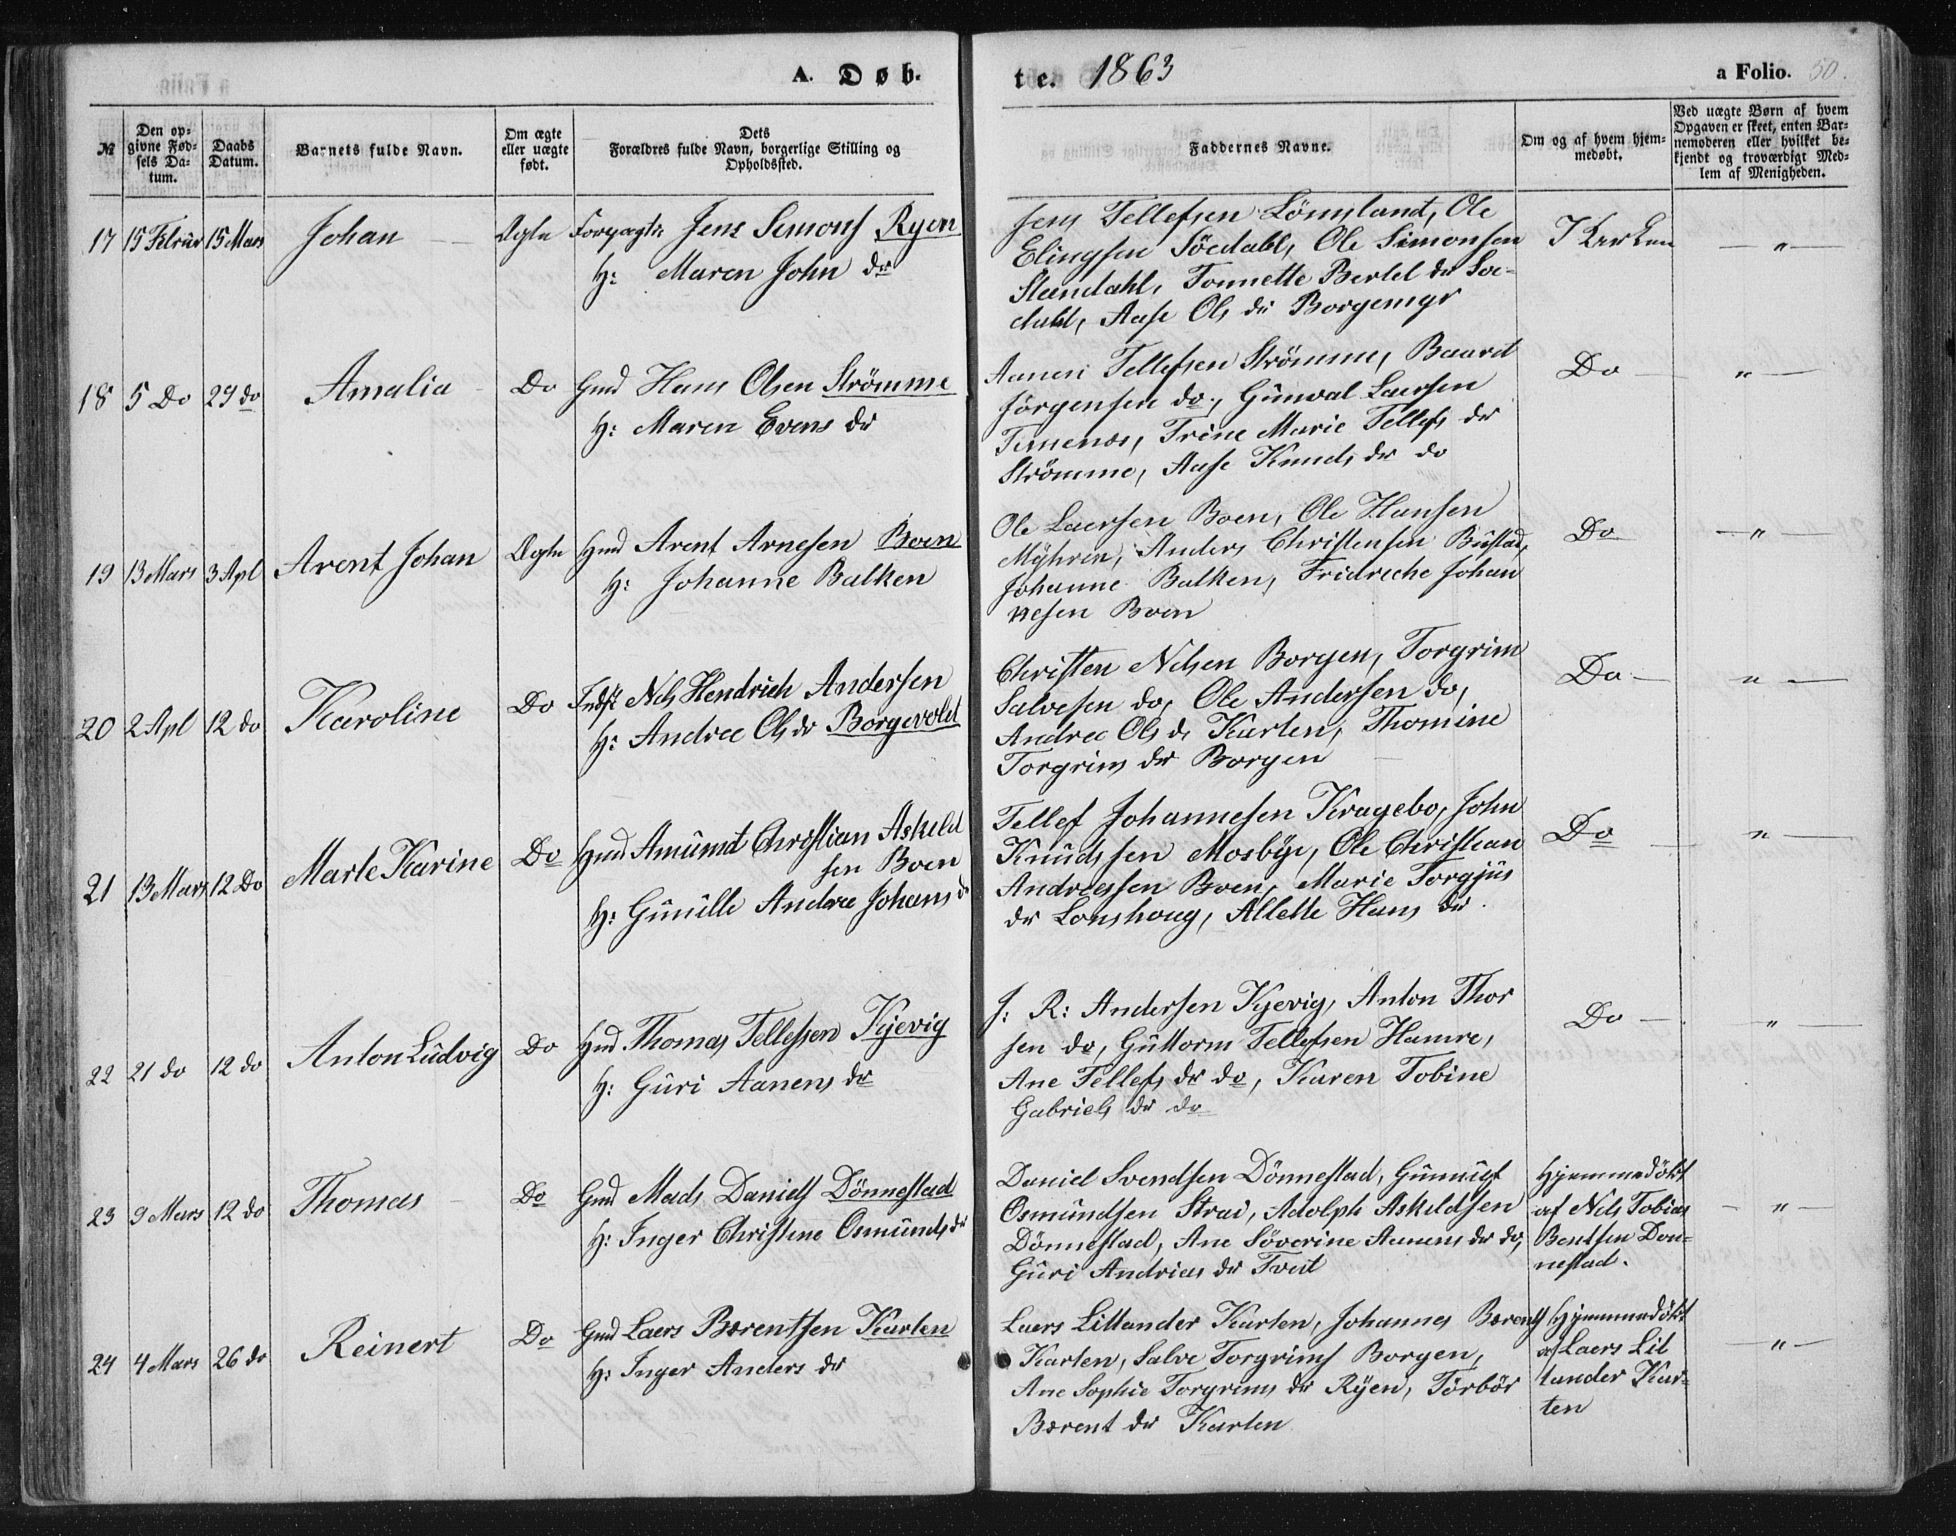 A. Døb-
te. 1863
a Folio. 50.
№
Den op-
givne Fød-
sels Da-
tum.
Daabs
Datum.
Barnets fulde Navn.
Om ægte
eller uægte
født.
Dets
Forældres fulde Navn, borgerlige Stilling og
Opholdssted.
Faddernes Navne.
Om og af hvem hjem-
medøbt.
Ved uægte Børn af hvem
Opgaven er skeet, enten Bar-
nemoderen eller hvilket be-
kjendt og troværdigt Med-
lem af Menigheden.
17 15 Febrūar 15 Mars Johan Ægte Forpagtr Jens Simons Ryen
H: Maren John dr
Jens Tellefsen Lömsland, Ole
Elingsen Söedahl, Ole Simonsen
Steendahl, Tonnette Bertel dr Soe-
dahl, Aase Ols dr Borgemyr
I Kirken — " —
18 5 Do 29 do Amalia Do Gmd Hans Olsen Strömme
H: Maren Evens dr
Aanen Tellefsen Strömme, Baard
Jörgensen do, Gūnval Laersen
Timenes, Trine Marie Tellefs dr
Strömme, Aase Knuds dr do
Do — " —
19 13 Mars 3 Apl Arent Johan Ægte Hmd Arent Arnesen Boen
H: Johanne Balken
Ole Laersen Boen, Ole Hansen
Myhren, Anders Christensen Bustad,
Johanne Balken, Fridreche Johan
nesen Boen
Do — " —
20 2 Apl 12 do Karoline Do Inds Nils Hendrich Andersen
H: Andrea Ols dr Borgevold
Christen Nilsen Borgen, Torgrim
Salvesen do, Ole Andersen do,
Andrea Ols dr Karten, Thomine
Torgrims dr Borgen
Do — " —
21 13 Mars 12 Do Marte Karine Do Hmd Amūnd Christian Askild
sen Boen
H: Gūnille Andrea Johans dr
Tellef Johannesen Kragebo, John
Knūdssen Mosbye, Ole Christian
Andreassen Boen, Marie Torgjūs
dr Lonshoug, Allette Hans dr
Do — " —
22 21 do 12 do Anton Lūdvig Do Hmd Thomas Tellefsen Kjevig
H: Gūri Aanens dr
J: R: Andersen Kjevig, Anton Thor
sen do, Gūttorm Tellefsen Hamre,
Ane Tellefs dr do, Karen Tobine
Gabriels dr do
Do — " —
23 9 Mars 12 do Thomas Do Gmd Mads Daniels Dönnestad
H: Inger Christine Osmūnds dr
Daniel Svendsen Dönnestad, Gūnnūlf
Osmūndsen Strai, Adolph Askildsen
Dönnestad, Ane Söverine Aanens dr do,
Gūri Andrias dr Tveit
Hjemmedöbt
af Nils Tobias
Bentsen Dön-
nestad.
— " —
24 4 Mars 26 do Reinert Do Gmd Laers Bærentsen Karten
H: Inger Anders dr
Laers Littander Karten, Johannes Bærents
Karten, Salve Torgrims Borgen,
Ane Sophie Torgrims dr Ryen, Törbör
Bærent dr Karten
Hjemmedöbt
af Laers Lit
tander Kar-
ten
— " —